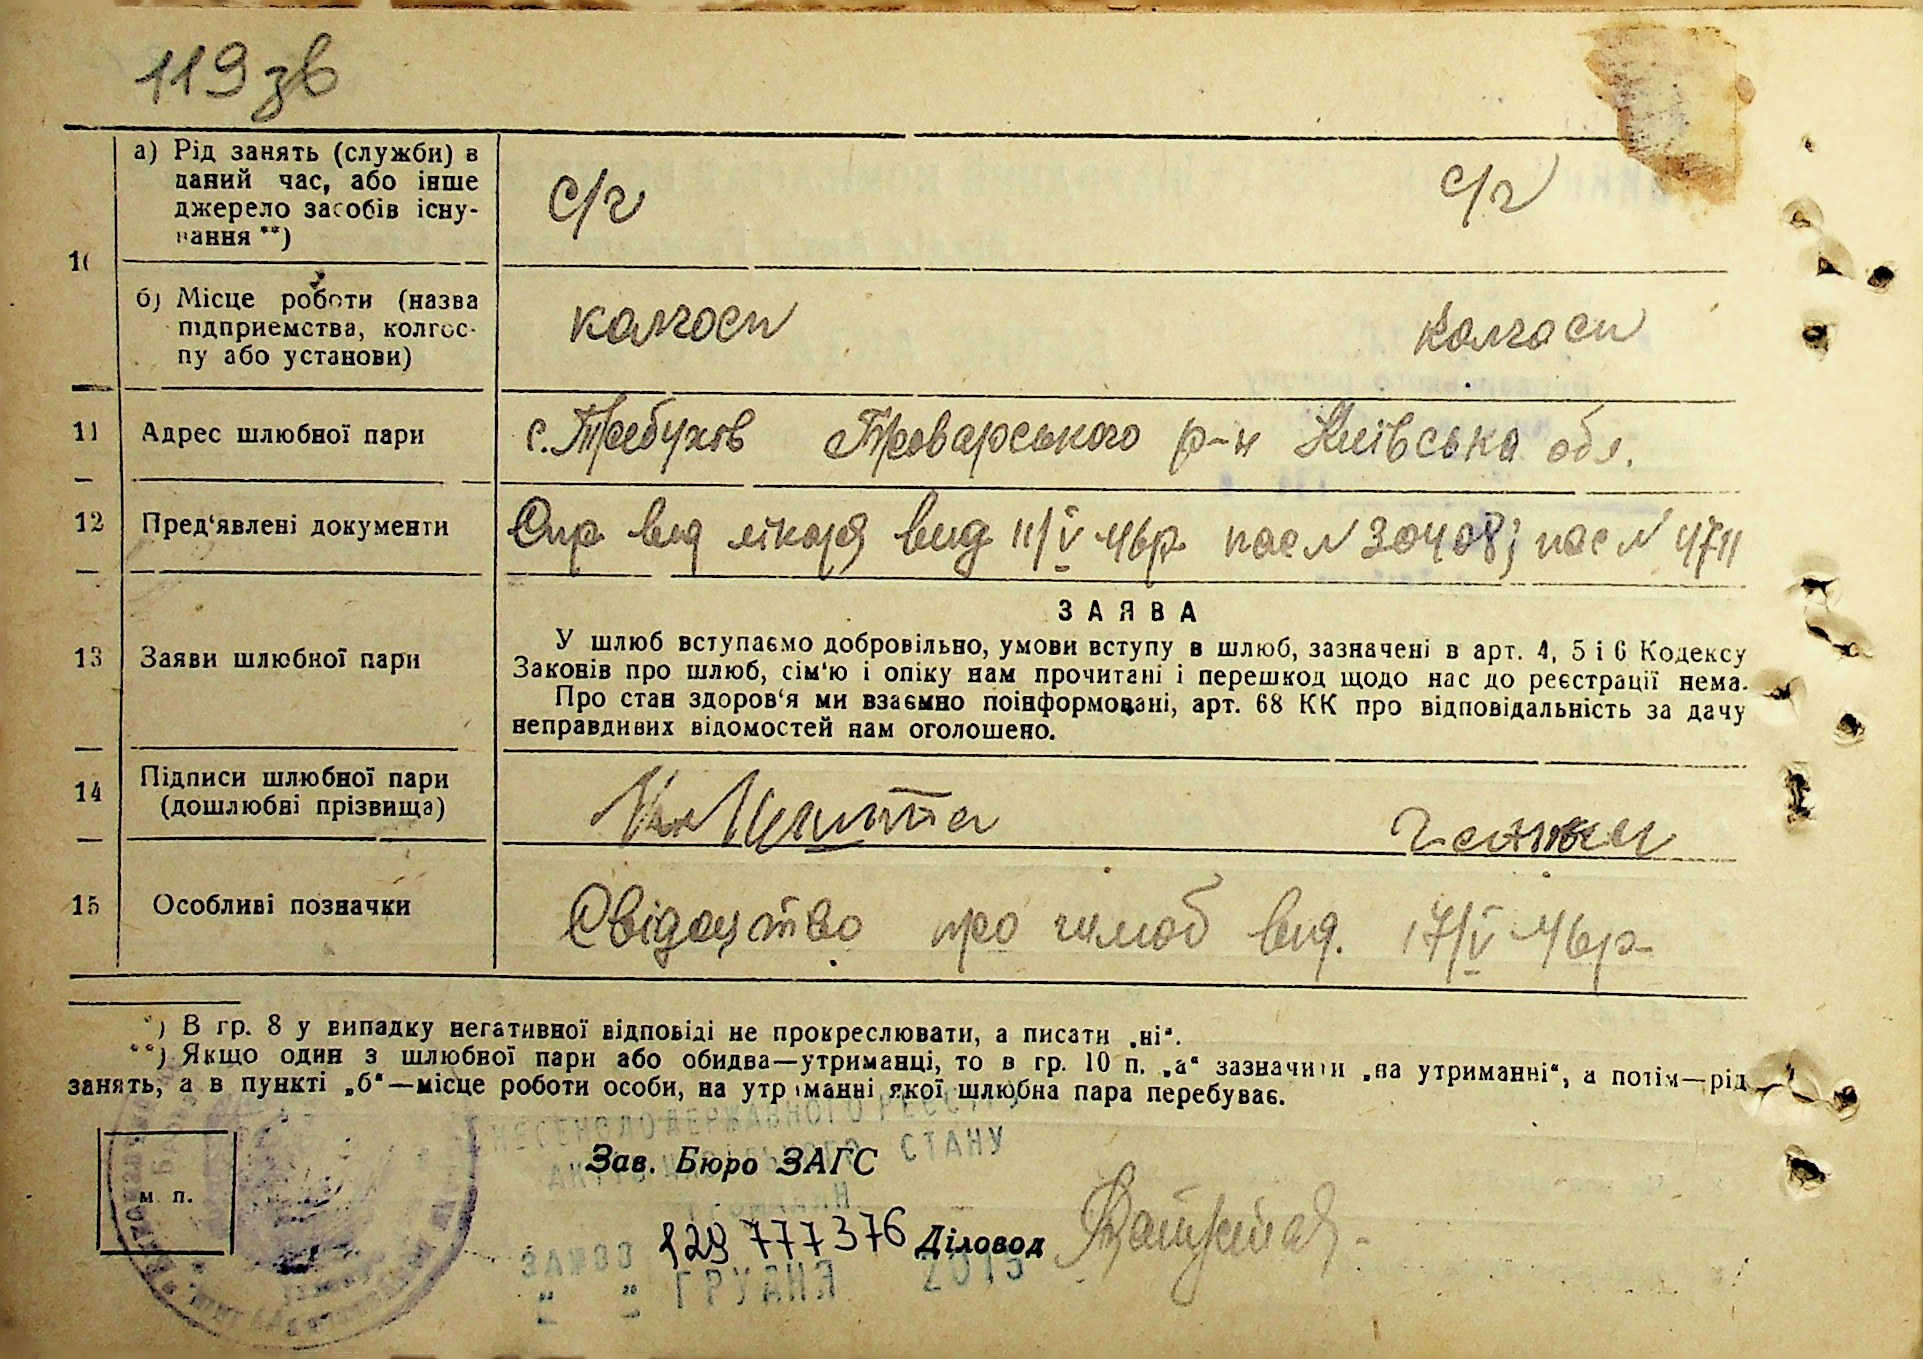 119 зв
а) Рід занять (служби) в
даний час, або інше
джерело засобів існу-
вання **)
с/г с/г
10
б) Місце роботи (назва
підприємства, колгос-
пу або установи)
колгосп колгосп
11 Адрес шлюбної пари с. Требухов Броварського р-н Київська обл.
12 Пред'явлені документи Спр від лікаря вид 11/V 46р. пас N 30408; пас N 4711
13 Заяви шлюбної пари
ЗАЯВА
У шлюб вступаємо добровільно, умови вступу в шлюб, зазначені в арт. 4, 5 і 6 Кодексу
Законів про шлюб, сім'ю і опіку нам прочитані і перешкод щодо нас до реєстрації нема.
Про стан здоров'я ми взаємно поінформовані, арт. 68 КК про відповідальність за дачу
неправдивих відомостей нам оголошено.
14 Підписи шлюбної пари
(дошлюбні прізвища)
15 Особливі позначки Свідоцтво про шлюб вид. 17/V 46р
*) В гр. 8 у випадку негативної відповіді не прокреслювати, а писати „ні“.
**) Якщо один з шлюбної пари або обидва—утриманці, то в гр. 10 п. „а“ зазначити „на утриманні“, а потім—рід
занять, а в пункті „б“—місце роботи особи, на утриманні якої шлюбна пара перебуває.
ВНЕСЕНО ДО ДЕРЖАВНОГО РЕЄСТРУ
АКТІВ ЦИВІЛЬНОГО СТАНУ
ГРОМАДЯН
Зав. Бюро ЗАГС
м п.
ЗА № 00 129 777 376 Діловод
" " ГРУДНЯ 2015